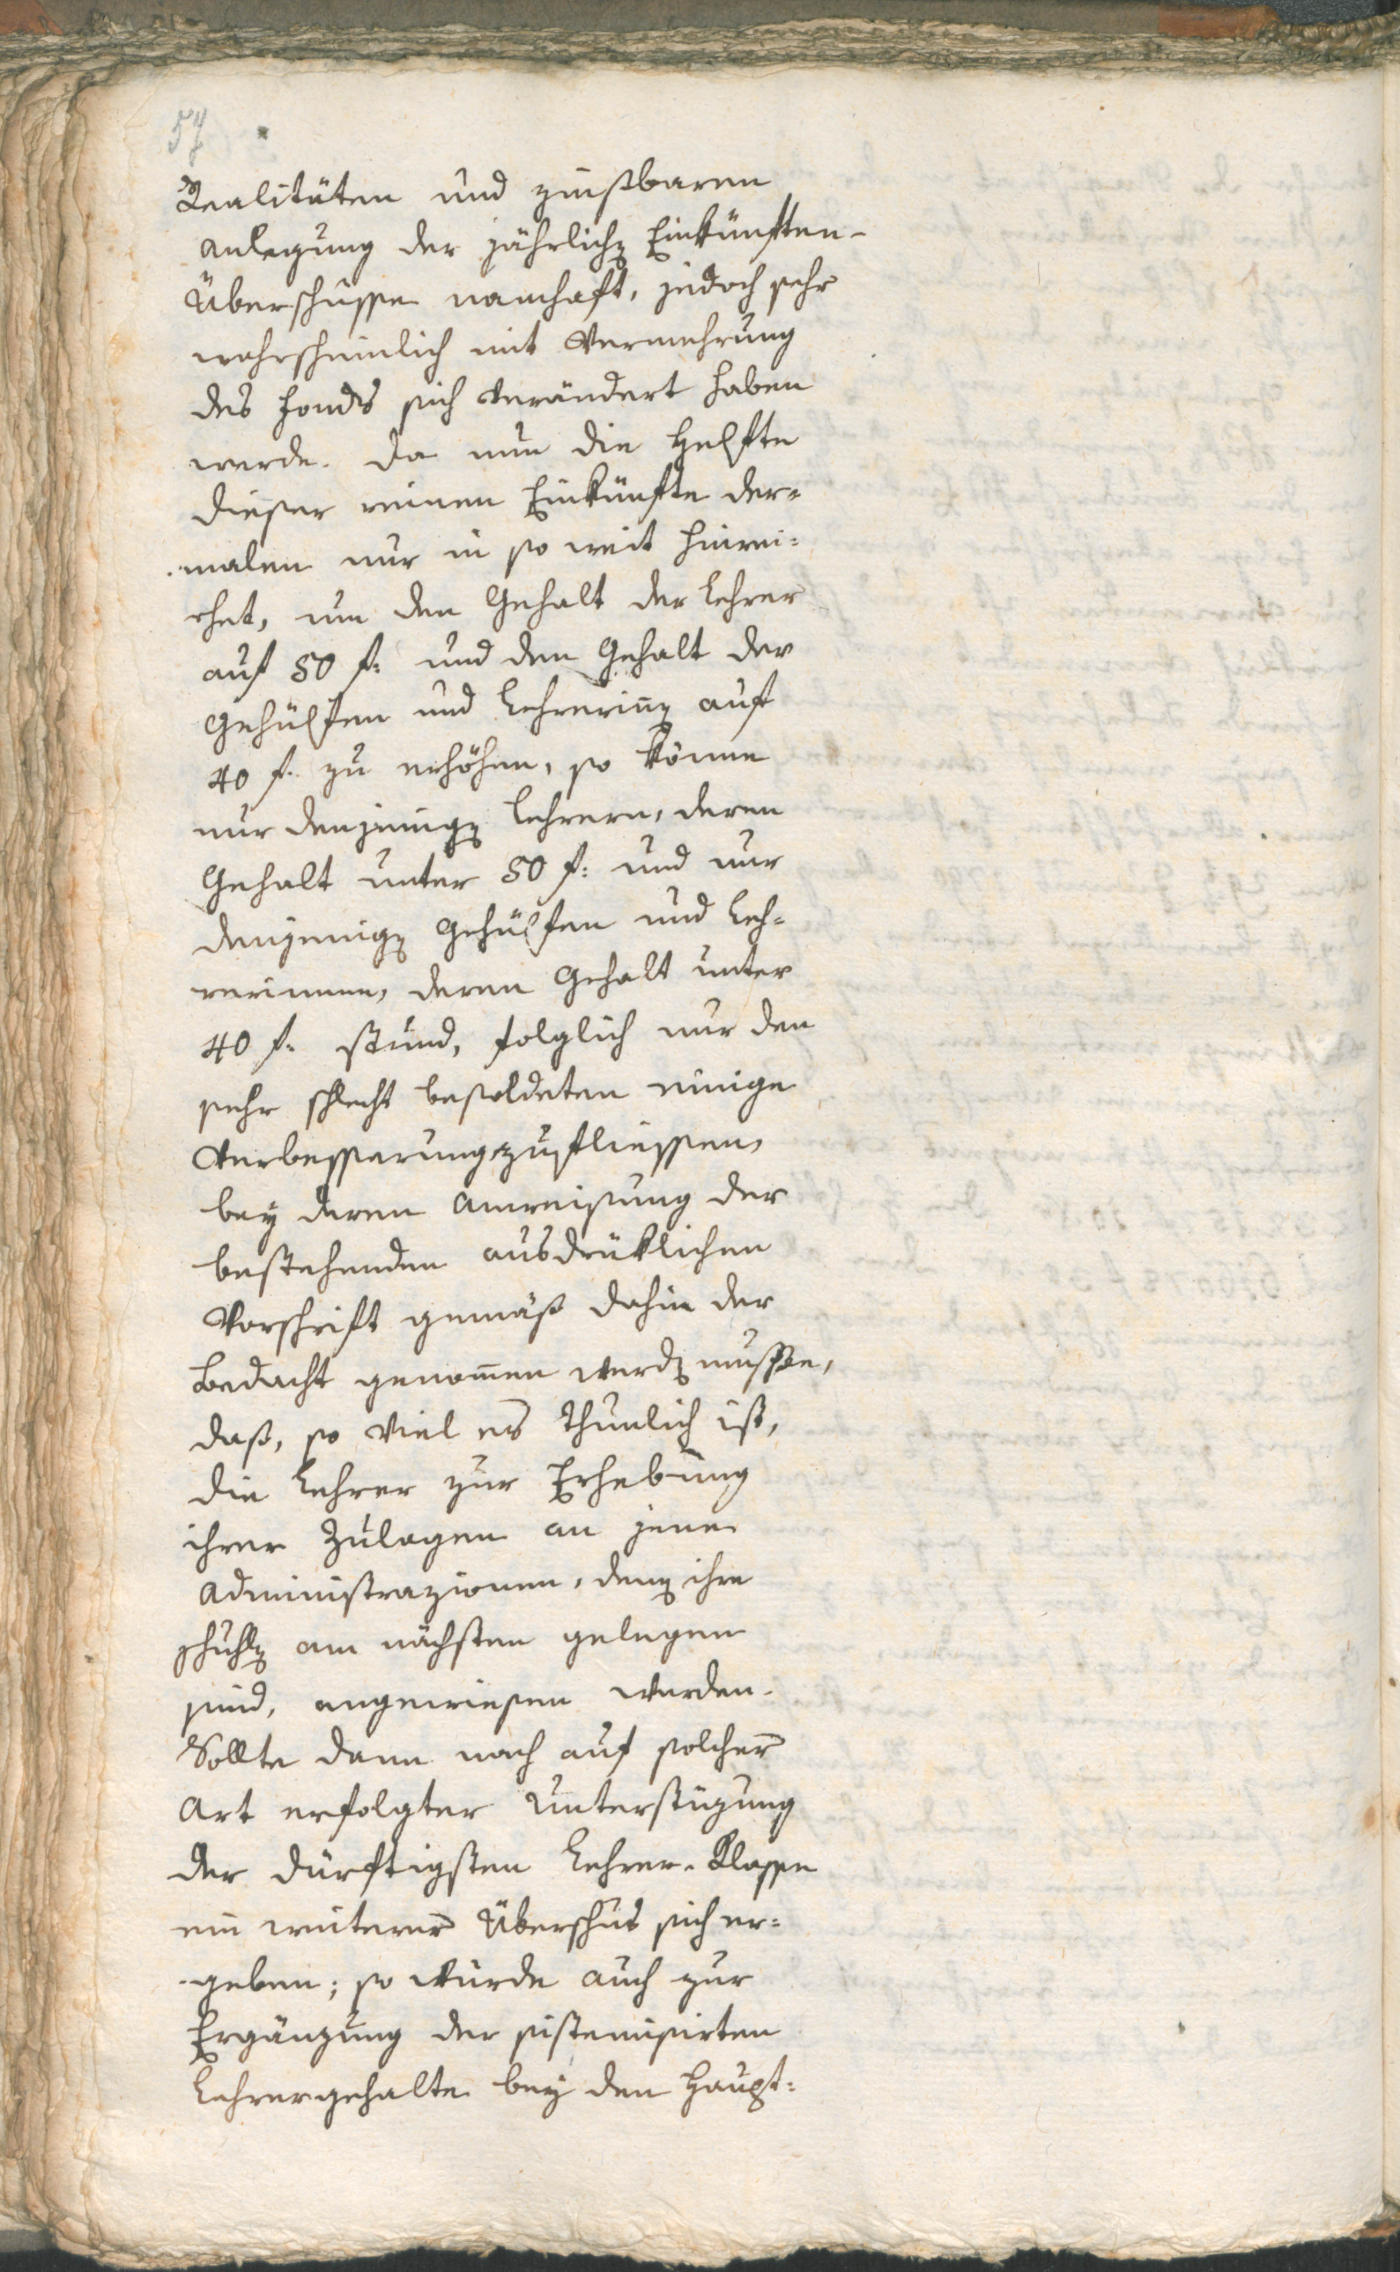 57
Realitäten und zinßbaren
anlegung der jährlichen Einkünften-
Überschüsse namhaft, jedoch sehr
wahrscheinlich mit Vermehrung
des Fonds sich verändert haben
werde. Da nun die Helfte
dieser reinen Einkünfte der-
malen nur in so weit hinrei-
chet, um den Gehalt der Lehrer
auf 50 f: und den Gehalt der
Gehülfen und Lehrerinnen auf
40 f. zu erhöhen, so könne
nur denjenigen Lehrern, deren
Gehalt unter 50 f: und nur
denjenigen Gehülfen und Leh-
rerinnen, deren Gehalt unter
40 f. stünd, folglich nur den
sehr schlecht besoldeten einige
Verbesserung zufliessen,
bey deren anweisung der
bestehenden ausdrüklichen
Vorschrift gemäß dahin der
Bedacht genommen werden müsse,
daß, so viel es thunlich ist,
die Lehrer zur Erhebung
ihrer Zulagen an jene
Administrazionen, denen ihre
Schuhlen am nächsten gelegen
sind, angewiesen werden.
Sollte dann nach auf solcher
Art erfolgter Unterstüzung
der dürftigsten Lehrer-Klasse
ein weiterer Überschus sich er-
geben; so würde auch zur
Ergänzung der sistemisirten
Lehrergehalte bey den Haupt-